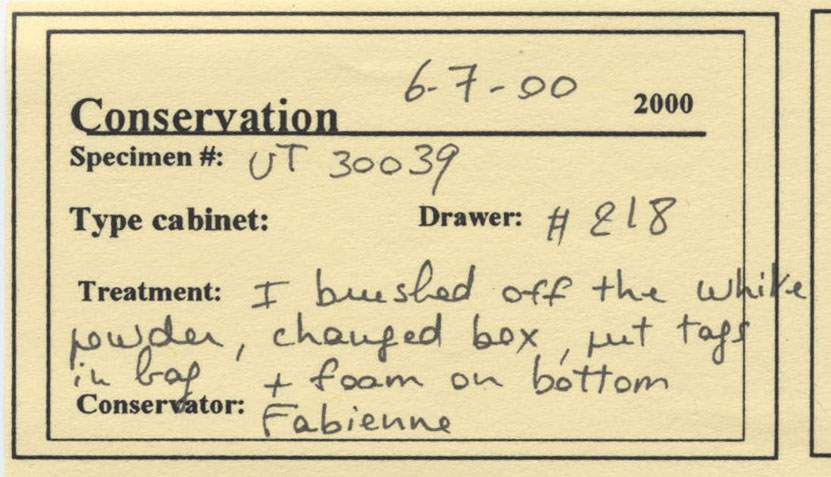 6-7-00
Conservation 2000
Specimen #: UT 30039
Type cabinet: Drawer: # 218
Treatment: I brushed off the white
powder, changed box, put tags
in bag + foam on bottom
Conservator: Fabienne